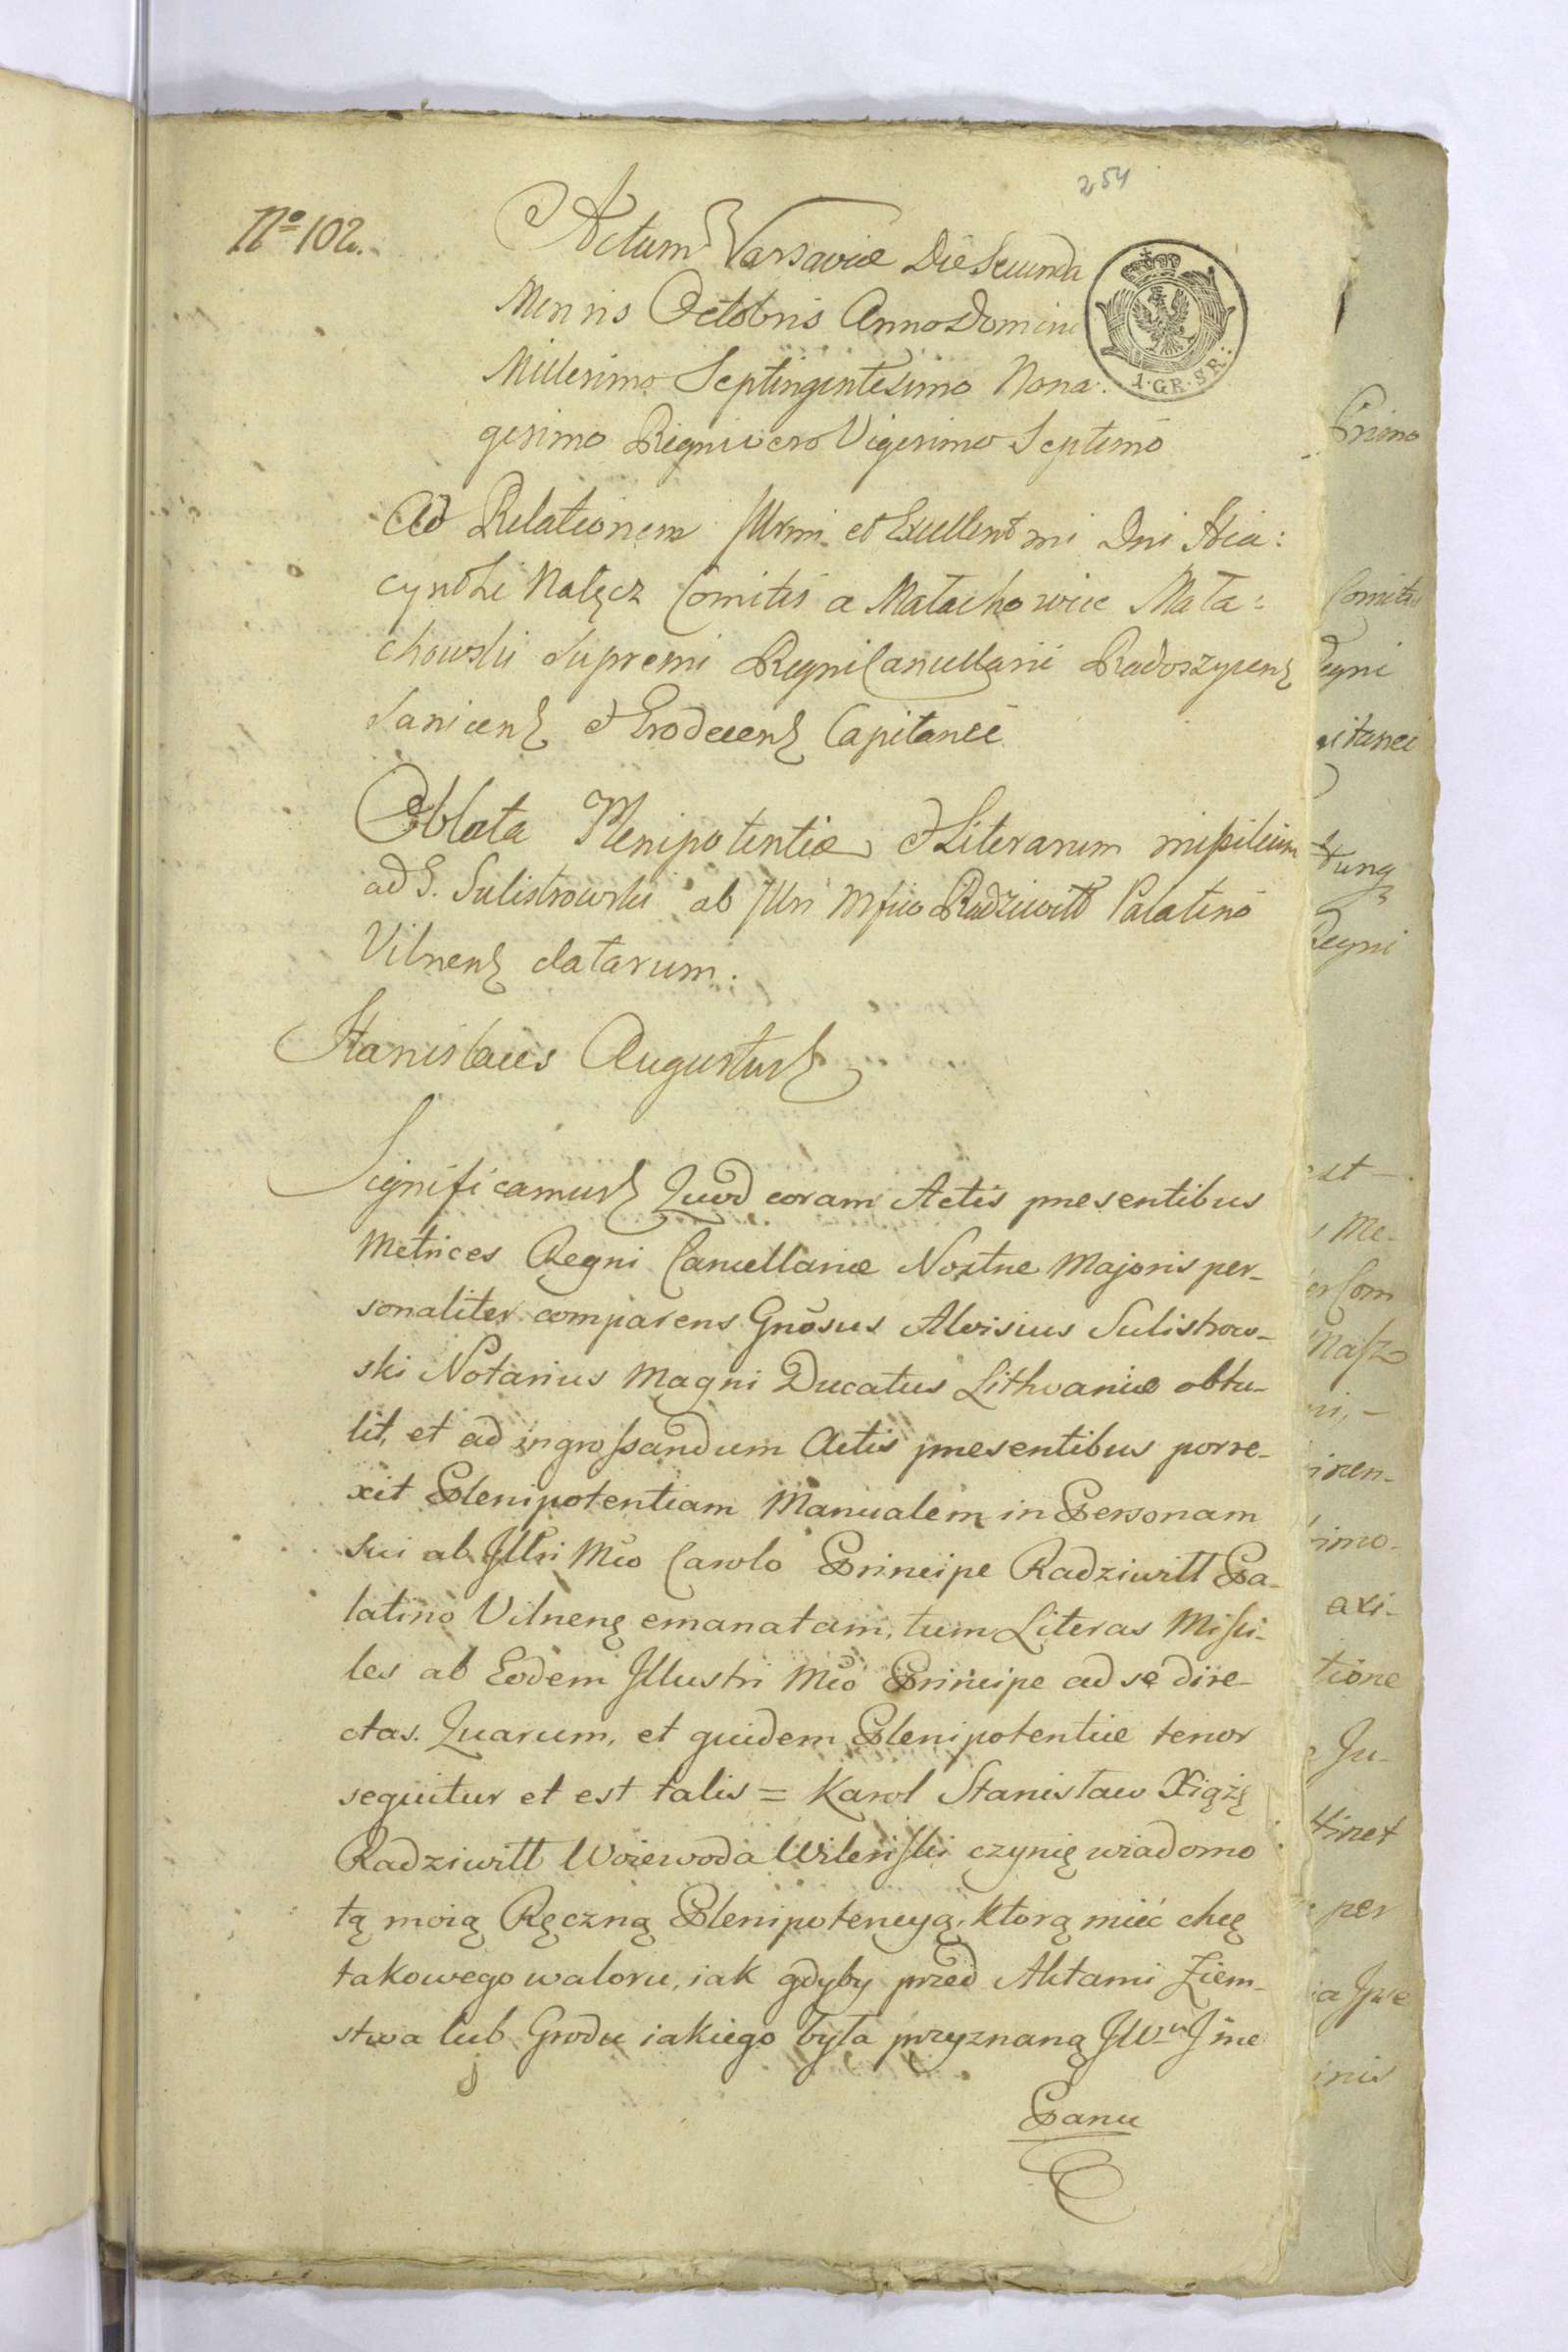 254
Nº 102.
Actum Varsaviæ Die Secunda
Mensis Octobris Anno Domini
Millesimo Septingentesimo Nona:
gesimo Regni vero Vigesimo Septimo
1·GR·SR:
Ad Relationem Illrmi et Excellentmi Dni Hia:
cynthi Nałęcz Comitis a Małachowice Mała:
chowski Supremi Regni Cancellarii Radoszycens
Sanicens & Grodecens Capitanei
Oblata Plenipotentiæ & Literarum missilium
ad G. Sulistrowski ab Illri Mfico Radziwiłł Palatino
Vilnens datarum.
Stanislaus Augustus
Significamus Quod coram Actis præsentibus
Metrices Regni Cancellariæ Nostræ Majoris per-
sonaliter comparens Gnõsus Aloisius Sulistrow-
ski Notarius Magni Ducatus Lithvaniæ obtu-
lit, et ad ingrossandum Actis præsentibus porre-
xit Plenipotentiam Manualem in Personam
sui ab Illri Mco Carolo Principe Radziwiłł Pa-
latino Vilnens emanatam, tum Literas Missi-
les ab Eodem Illustri Mco Principe ad se dire-
ctas. Quarum, et quidem Plenipotentiæ tenor
sequitur et est talis = Karol Stanisław Xiąże
Radziwiłł Woiewoda Wileński czynię wiadomo
tą moią Ręczną Plenipotencyą, ktorą mieć chcę
takowego waloru, iak gdyby przed Aktami Ziem-
stwa lub Grodu iakiego była przyznaną JWu Jme
Panu
Primo
Comitis
Regni
Regni